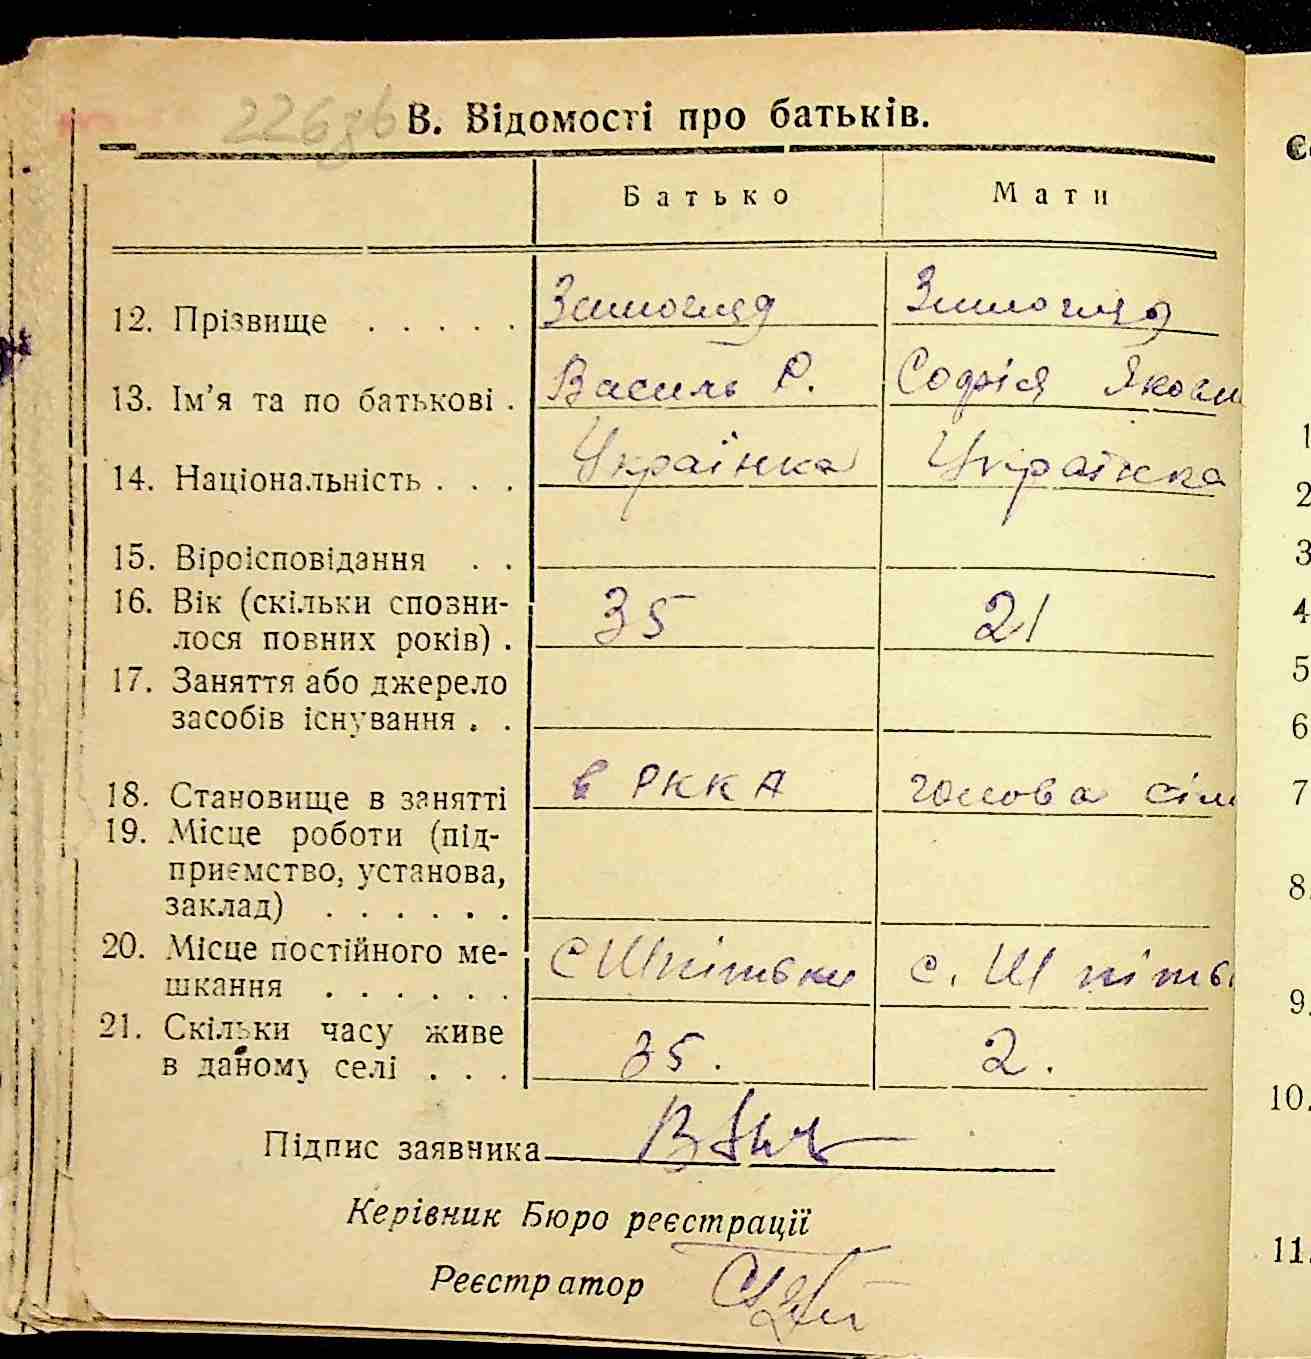 226зв В. Відомості про батьків.
Батько Мати
12. Прізвище . . . . . Зимогляд Зимогляд
13. Ім'я та по батькові . Василь Р. Софія Якови
14. Національність . . . Українка Українка
15. Віроісповідання . .
16. Вік (скільки спозни-
лося повних років) . 35 21
17. Заняття або джерело
засобів існування . .
18. Становище в занятті в РККА голова сіл
19. Місце роботи (під-
приємство, установа,
заклад) . . . . . .
20. Місце постійного ме-
шкання . . . . . . С Шпітьки с. Шпіть
21. Скільки часу живе
в даному селі . . . 35. 2.
Підпис заявника
Керівник Бюро реєстрації
Реєстратор
1
2
3
4
5
6
7
8.
9.
10.
11.